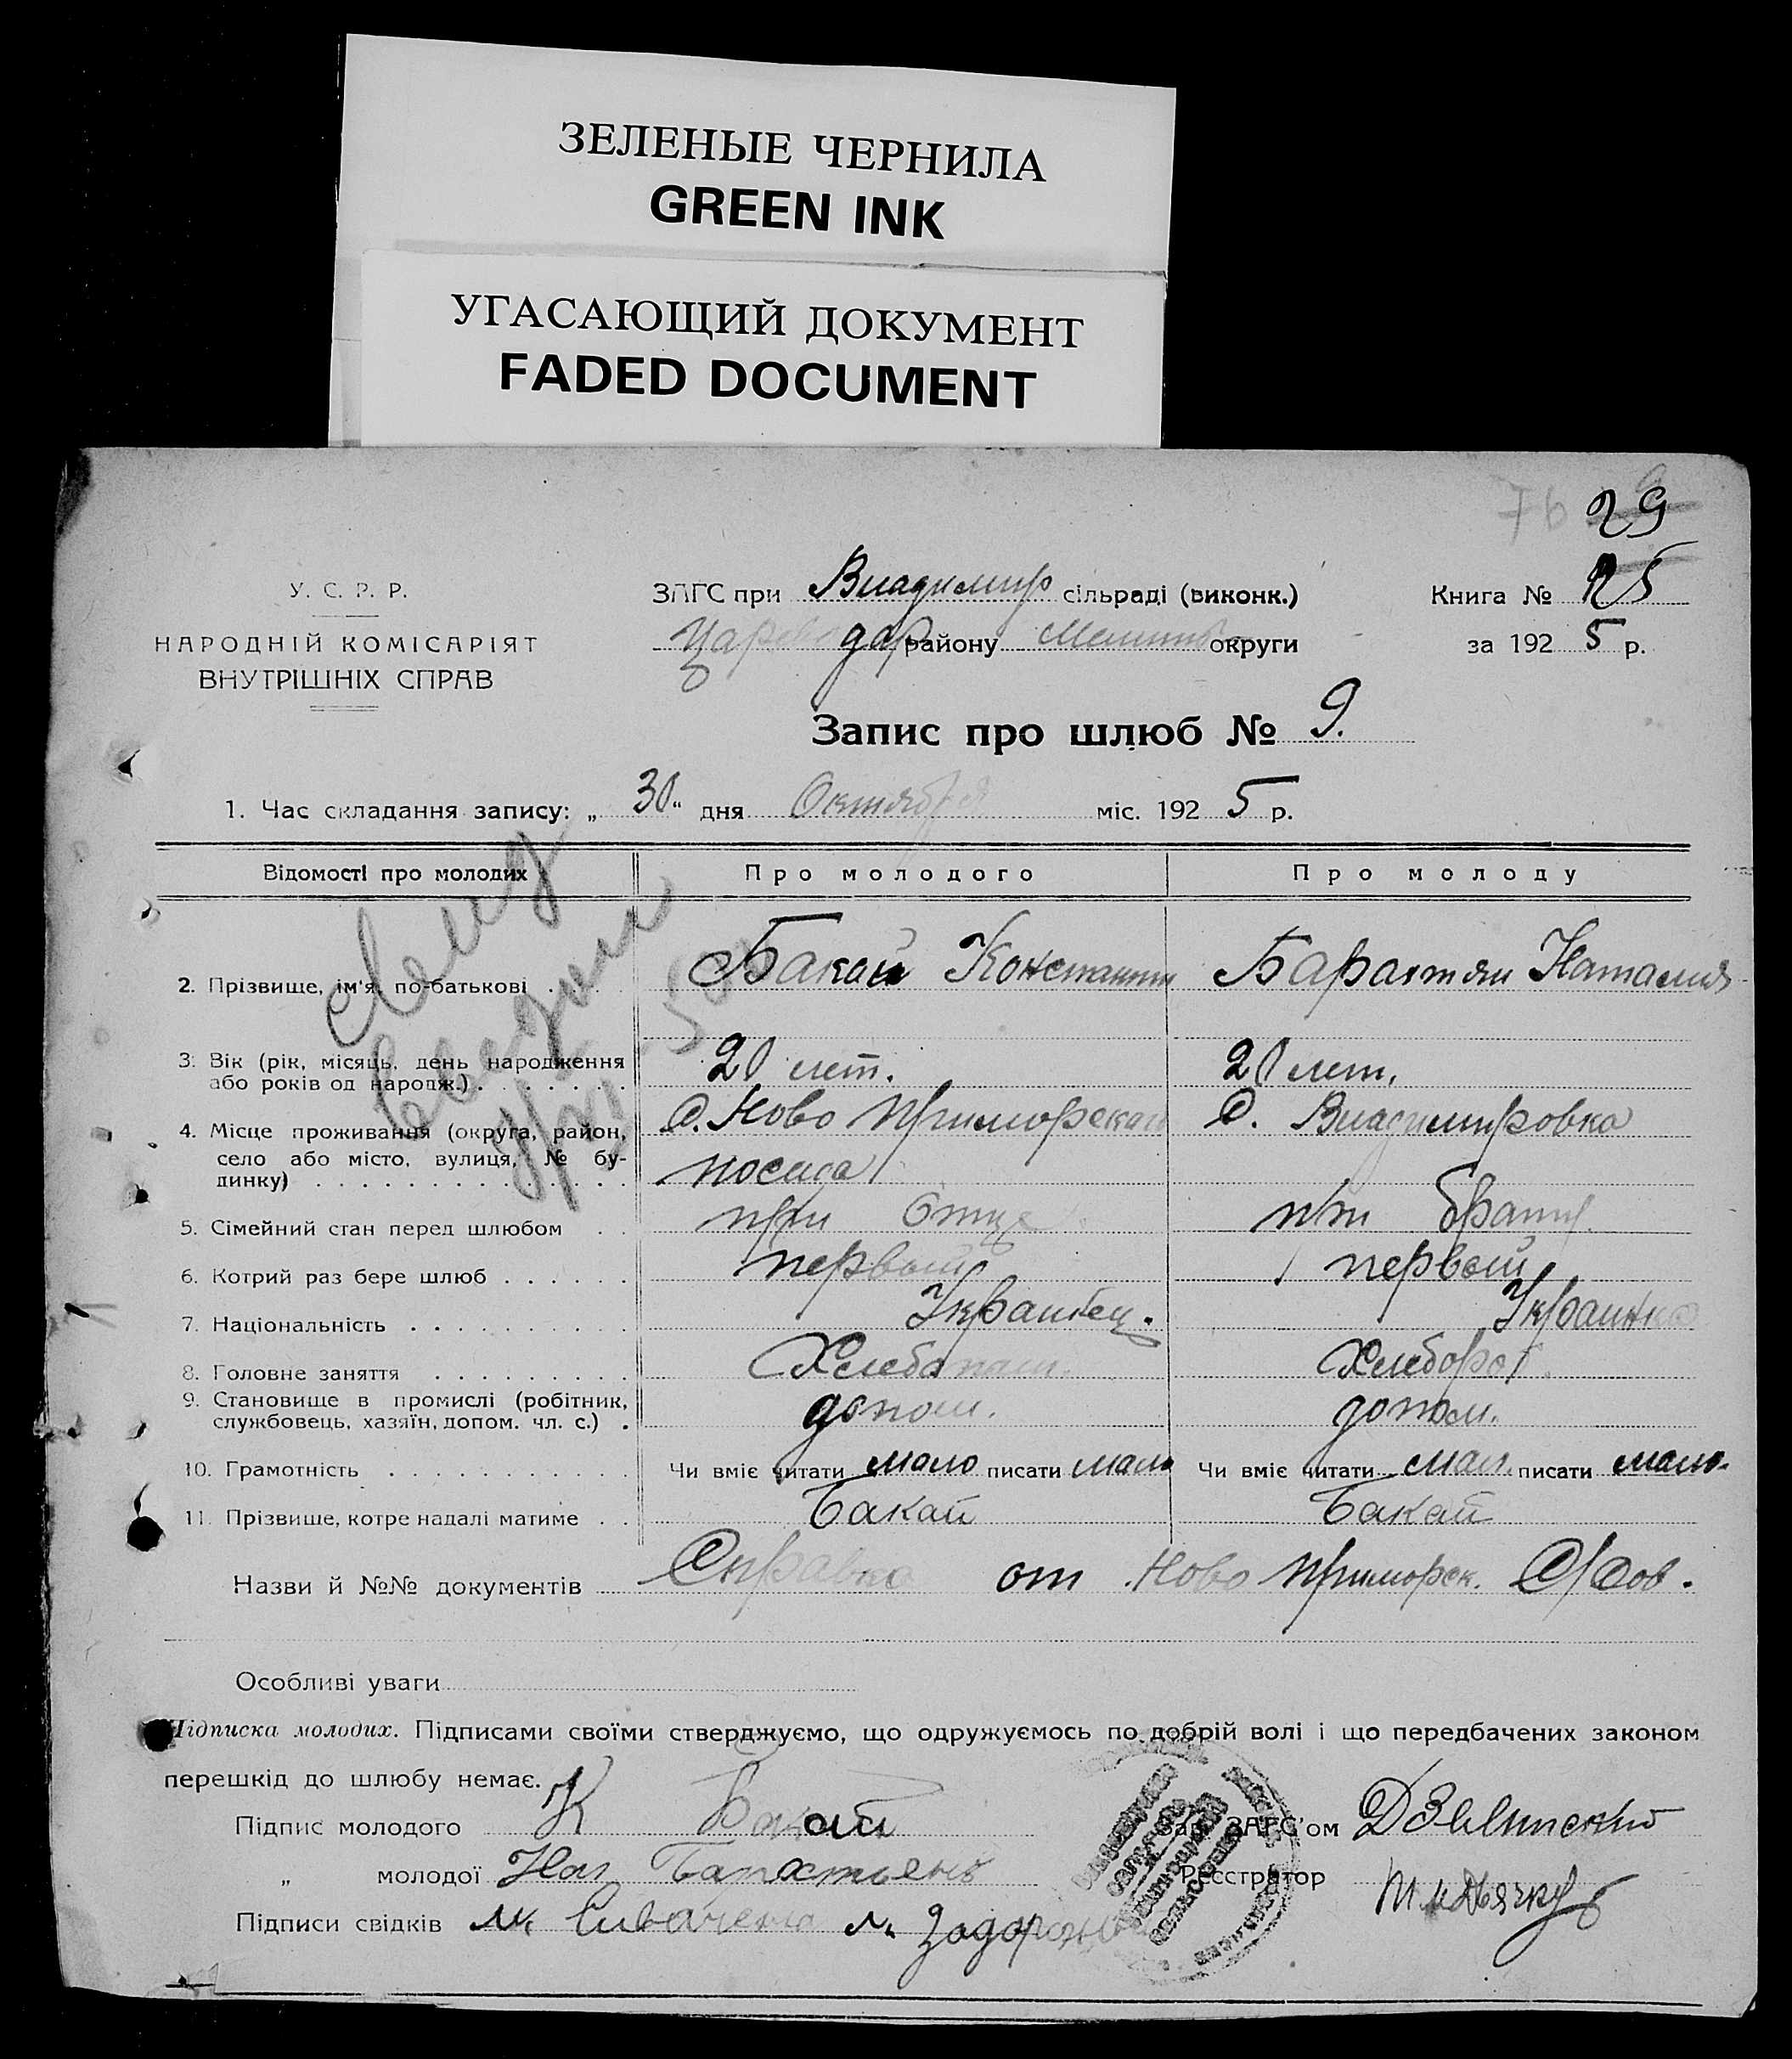 ЗЕЛЕНЫЕ ЧЕРНИЛА
GREEN INK
УГАСАЮЩИЙ ДОКУМЕНТ
FADED DOCUMENT
76 29
У. С. Р. Р.
НАРОДНІЙ КОМІСАРІЯТ
ВНУТРІШНІХ СПРАВ
ЗАГС при Владимир сільраді (виконк.)
Царево дар району округи
Книга № 25
за 1925 р.
Запис про шлюб № 9.
1. Час складання запису: „30" дня Октября міс. 1925 р.
Відомості про молодих
Про молодого
Про молоду
2. Прізвище, ім'я, по-батькові Бакай Константин
Наталия
3. Вік (рік, місяць, день народження або років од народж.) 20 лет. 20 лет.
4. Місце проживання (округа, район, село або місто, вулиця, № будинку) С. Ново Приморская С. Владимировка
5. Сімейний стан перед шлюбом при Отце при брату
6. Котрий раз бере шлюб первый первый
7. Національність Украинец. Украинка
8. Головне заняття Хлебопаш. Хлебороб
9. Становище в промислі (робітник, службовець, хазяїн, допом. чл. с.) допом. допом.
10. Грамотність Чи вміє читати мало писати мало Чи вміє читати мал. писати мало.
11. Прізвище, котре надалі матиме Бакай Бакай
Назви й №№ документів Справка от Ново Приморск. С/Сов.
Особливі уваги
Підписка молодих. Підписами своїми стверджуємо, що одружуємось по добрій волі і що передбачених законом
перешкід до шлюбу немає.
Підпис молодого К Бакай
Зав. ЗАГС'ом
„ молодої Нат
Реєстратор
Підписи свідків